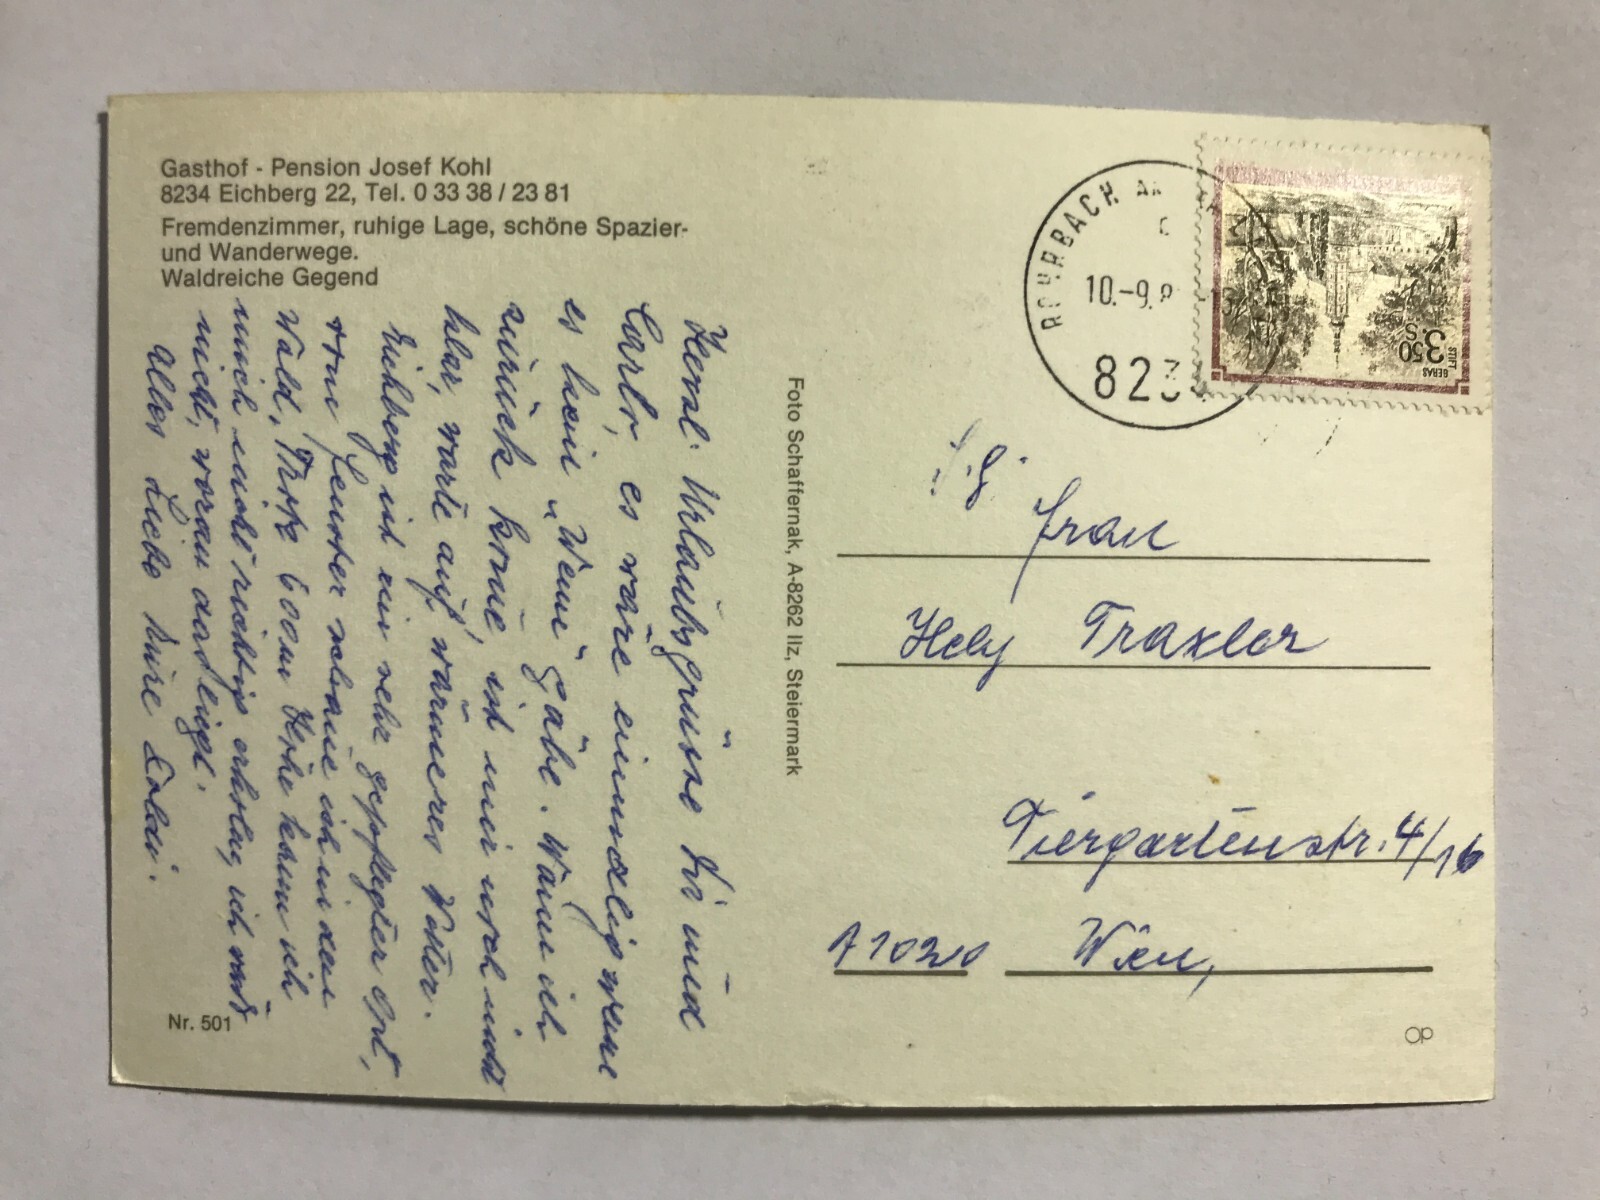 Gasthof - Pension Josef Kohl
8234 Eichberg 22, Tel. 0 33 38 / 23 81
Fremdenzimmer, ruhige Lage, schöne Spazier-
und Wanderwege.
Waldreiche Gegend
Urlaubsgrüsse Dir und
es wäre einmalig wenn
es kein "Wenn" gäbe. Wann ich
zurück komme, ist mir noch nicht
klar, warte auf wärmeres Wetter.
Eichberg ist ein sehr gepflegter Ort,
vom Fenster schaue ich in den
Wald. Trotz 600m Höhe kann ich
mich nicht richtig erholen, ich weiß
nicht, woran das liegt.
Alles Liebe Deine Loldi.
Nr. 501
Foto Schaffernak, A-8262 Ilz, Steiermark
ROHRBACH AN
10.-9.8
823
STIFT
GERAS
S 3.50
Frau
Hely Traxler
Tiergartenstr. 4/16
A 1020 Wien,
OP